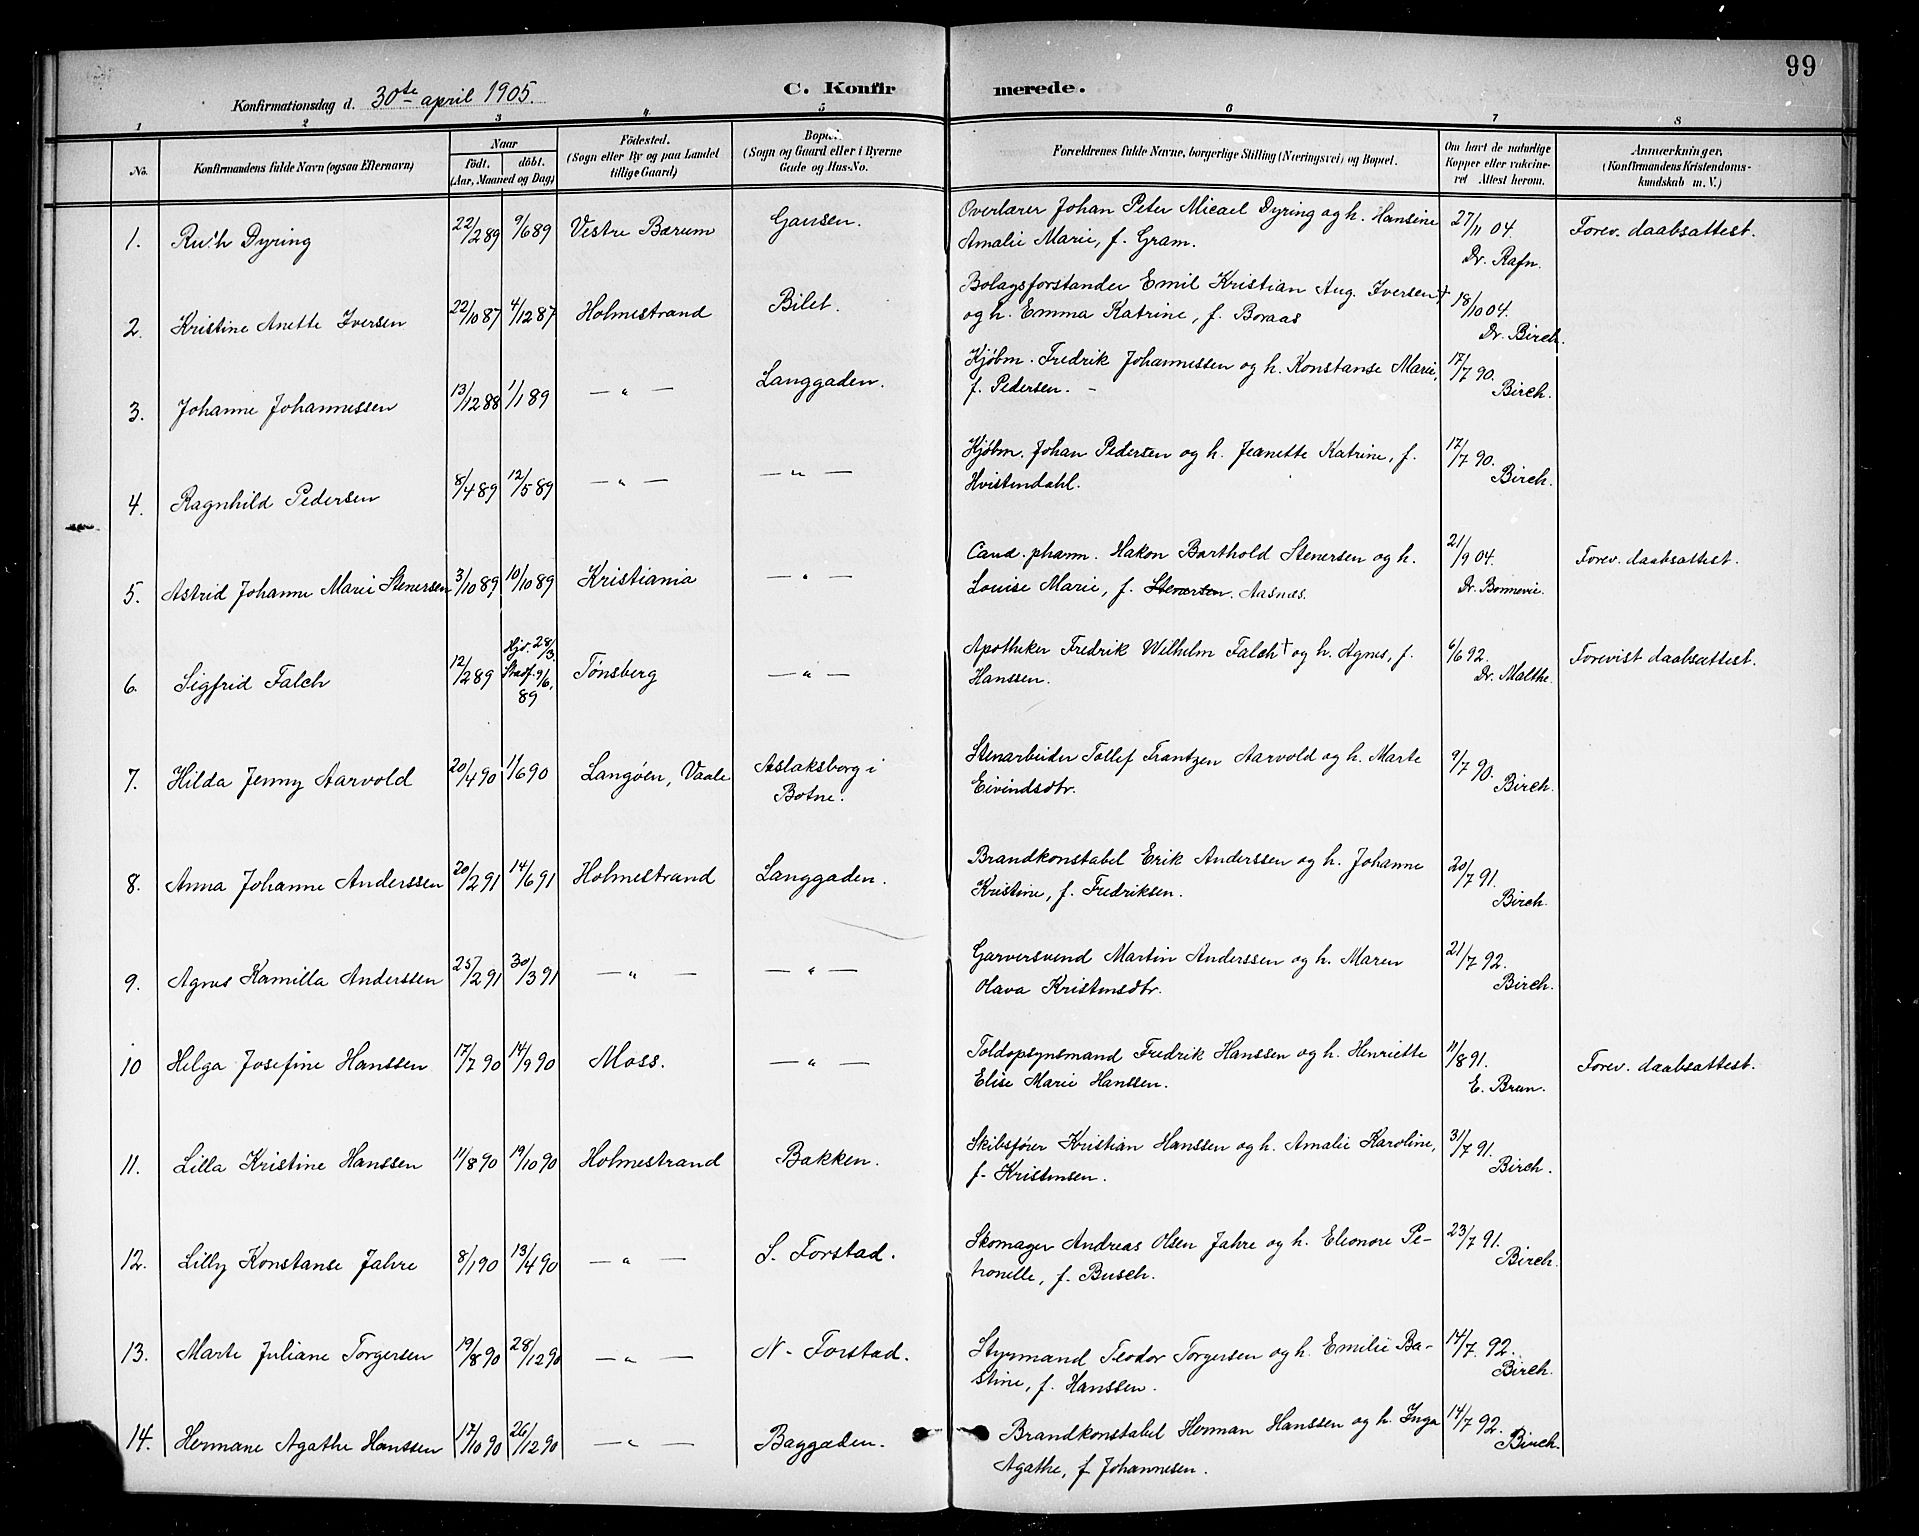 99
Konfirmationsdag d. 30te april 1905.
C. Konfir merede.
1 2 3 4 5 6 7 8
No.
Konfirmandens fulde Navn (ogsaa Efternavn)
Naar
födt. döbt.
(Aar, Maaned og Dag)
Födested.
(Sogn eller By og paa Landet
tillige Gaard)
Bopæl
(Sogn og Gaard eller i Byerne
Gade og Hus-No.
Forældrenes fulde Navne, borgerlige Stilling (Næringsvei) og Bopæl.
Om havt de naturlige
Kopper eller vakcine-
ret Attest herom.
Anmærkninger,
(Konfirmandens Kristendoms-
kundskab m. V.)
1. Ruth Dyring 22/2 89 9/6 89 Vestre Bærum Gausen.
Overlærer Johan Peter Micael Dyring og h. Hansine
Amalie Marie, f. Gram.
27/11 04.
Dr. Rafn.
Forev. daabsattest.
2. Kristine Anette Iversen 22/10 87 4/12 87 Holmestrand Bilet.
Bolagsforstander Emil Kristian Aug. Iversen†
og h. Emma Katrine, f. Boraas
18/10 04.
Dr. Birch.
3. Johanne Johannessen 13/12 88 1/1 89 — " — Langgaden.
Kjøbm. Fredrik Johannessen og h. Konstanse Marie,
f. Pedersen. -
17/7 90.
Birch.
4. Ragnhild Pedersen 8/4 89 12/5 89 — " — — " —
Kjøbm. Johan Pedersen og h. Jeanette Katrine, f.
Hvistendahl.
17/7 90.
Birch.
5. Astrid Johanne Marie Stenersen 3/10 89 10/10 89 Kristiania — " —
Cand. pharm. Hakon Barthold Stenersen og h.
Louise Marie, f. Stenersen. Aasnæs.
21/9 04.
Dr. Bonnevie.
Forev. daabsattest.
6. Sigfrid Falch 12/2 89 Hjd. 28/3.
Stadf. 9/6.
89
Tønsberg — " —
Apotheker Fredrik Wilhelm Falch† og h. Agnes, f.
Hanssen.
6/6 92.
Dr. Malthe.
Forevist daabsattest.
7. Hilda Jenny Aarvold 20/4 90 1/6 90 Langøen, Vaale Aslaksborg i
Botne.
Stenarbeider Tollef Frantzen Aarvold og h. Marte
Eivindsdtr.
9/7 90.
Birch.
8. Anna Johanne Anderssen 20/2 91 14/6 91 Holmestrand Langgaden.
Brandkonstabel Erik Anderssen og h. Johanne
Kristine, f. Fredriksen.
20/7 91.
Birch.
9. Agnes Kamilla Anderssen 25/2 91 30/3 91 — " — — " —
Garversvend Martin Anderssen og h. Maren
Olava Kristensdtr.
21/7 92.
Birch.
10 Helga Josefine Hanssen 17/7 90 14/9 90 Moss. — " —
Toldopsynsmand Fredrik Hanssen og h. Henriette
Elise Marie Hanssen.
11/8 91.
E. Brun.
Forev. daabsattest.
11. Lilla Kristine Hanssen 11/8 90 19/10 90 Holmestrand Bakken.
Skibsfører Kristian Hanssen og h. Amalie Karoline,
f. Kristensen.
31/7 91.
Birch.
12. Lilly Konstanse Jahre 8/1 90 13/4 90 — " — S. Forstad.
Skomager Andreas Olsen Jahre og h. Eleonore Pe-
tronelle, f. Busch.
23/7 91.
Birch.
13. Marte Juliane Torgersen 19/8 90 28/12 90 — " — N. Forstad.
Styrmand Teodor Torgersen og h. Emilie Ba-
stine, f. Hanssen.
14/7. 92.
Birch.
14. Hermane Agathe Hanssen 17/10 90 26/12 90 — " — Baggaden.
Brandkonstabel Herman Hanssen og h. Inga
Agathe, f Johannesen.
14/7 92.
Birch.